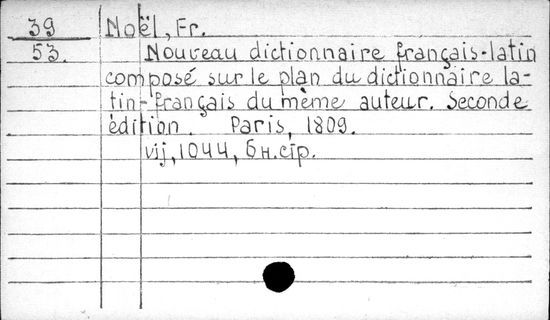 39 Noël, Fr.
53. Nouveau dictionnaire français-latin
composé sur le plan du dictionnaire la-
tin-français du même auteur. Seconde
édition. Paris, 1809.
vij, 1044, 6н.стр.